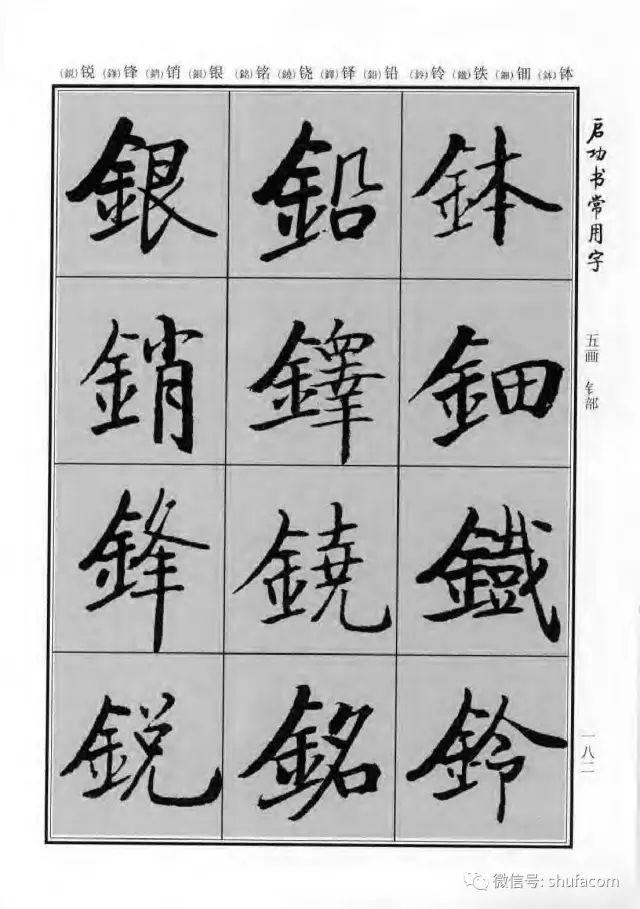 (銳)锐 (鋒)锋 (銷)销 (銀)银 (銘)铭 (鐃)铙 (鐸)铎 (鉛)铅 (鈴)铃 (鐵)铁 (鈿)钿 (鉢)钵
启功书常用字
五画 钅部
一八二
鉢
鈿
鐵
鈴
鉛
鐸
鐃
銘
銀
銷
鋒
銳
微信号: shufacom